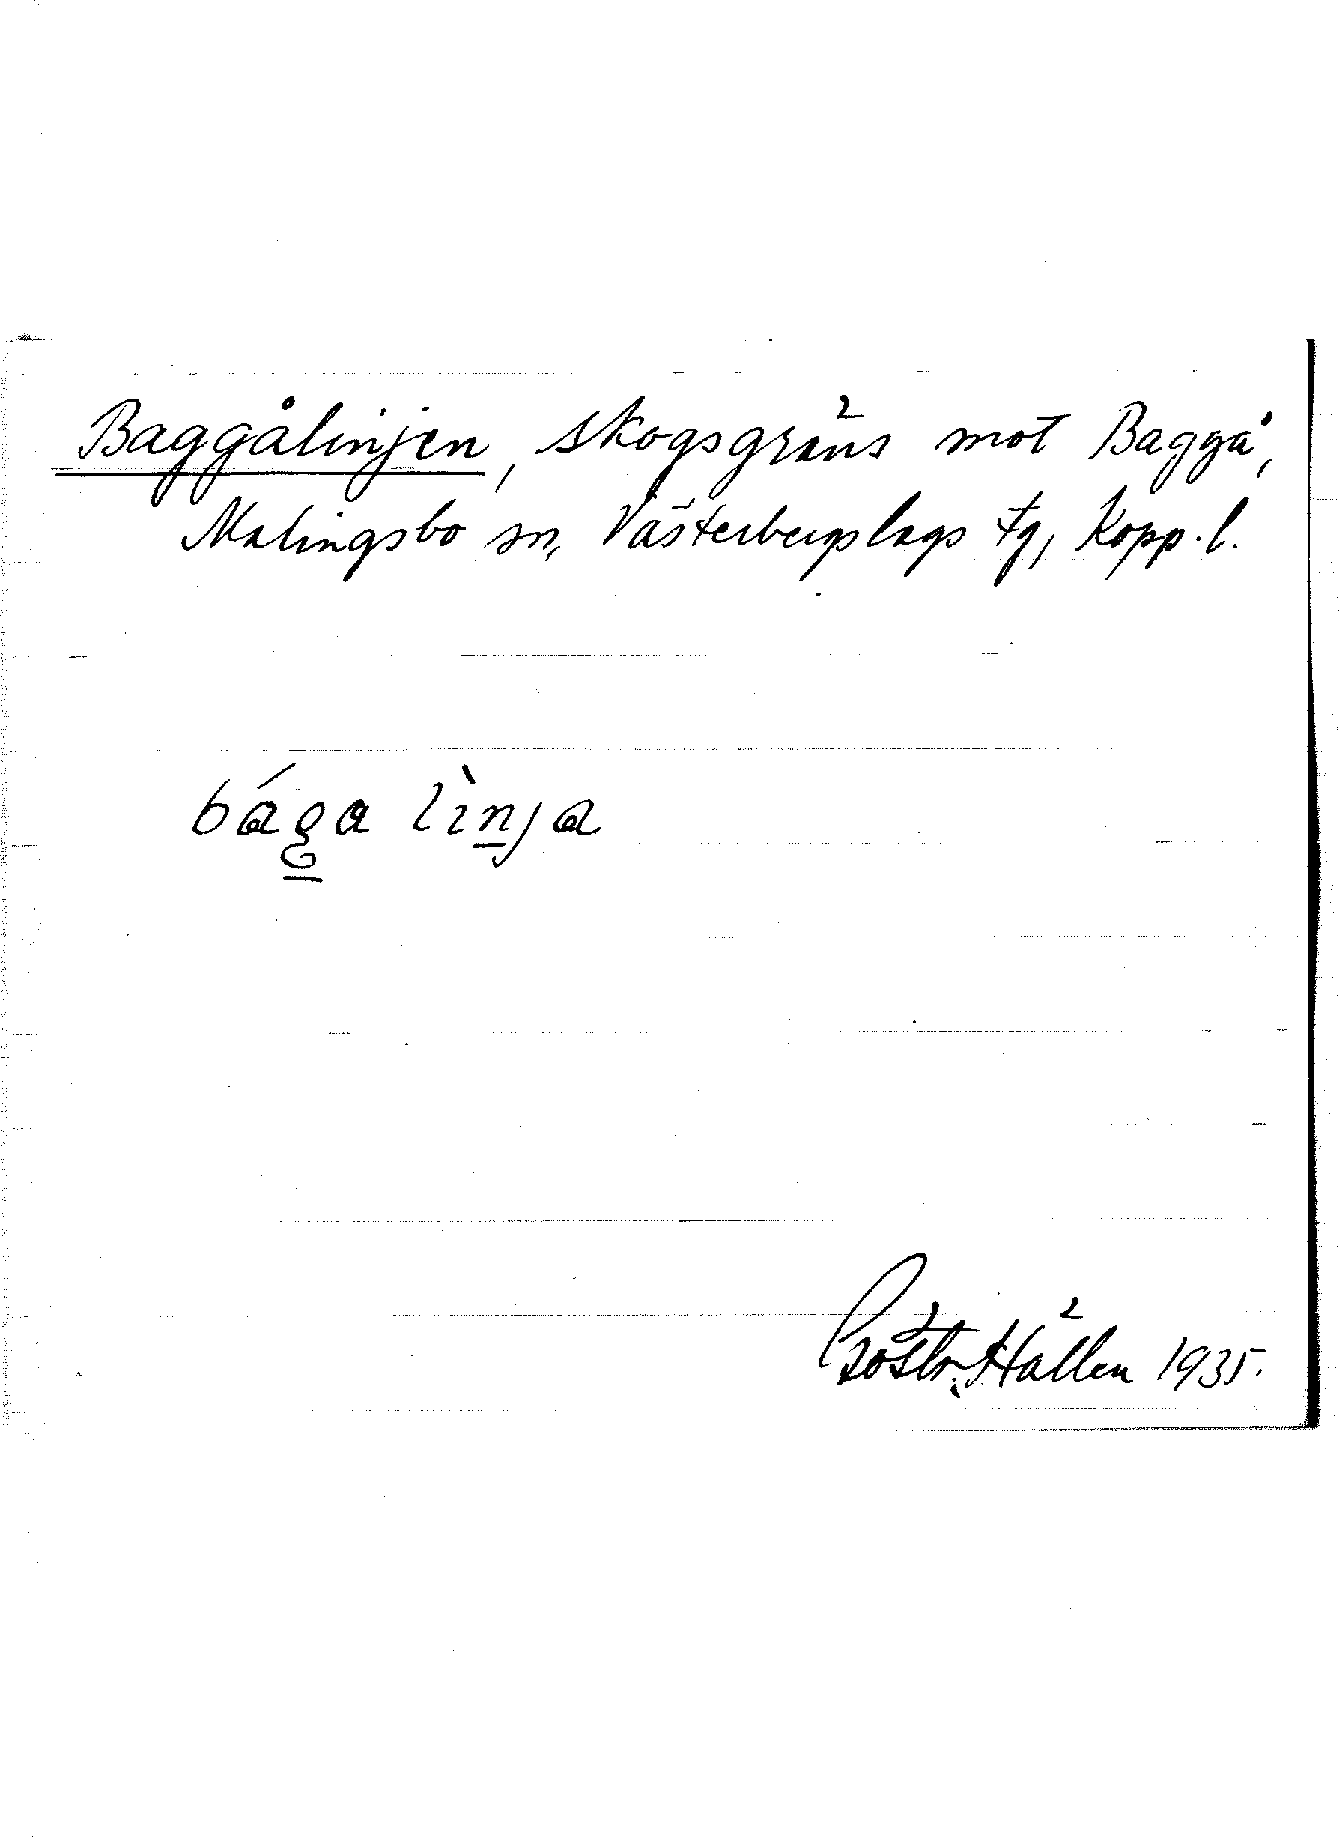 Baggålinjen, skogsgräns mot Baggå,
Malingsbo sn, Västerbergslags tg, Kopp. l.
bága lìnja
Hällen 1935.